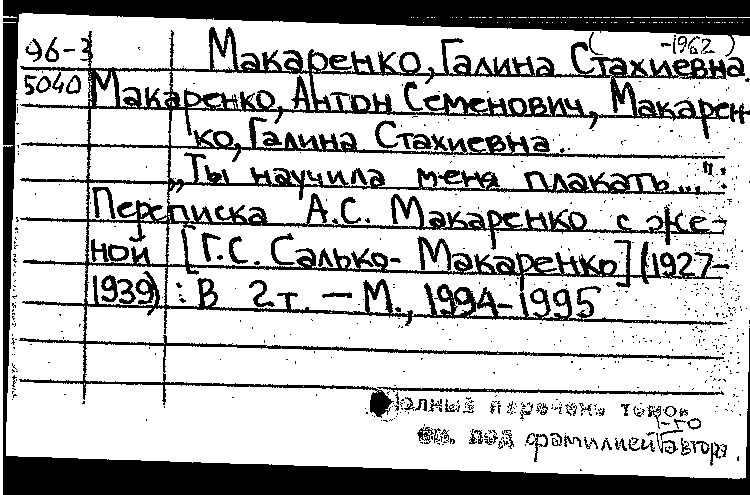 96-3
5040
( -1962 )
Макаренко, Галина Стахиевна.
Макаренко, Антон Семенович, Макарен-
ко, Галина Стахиевна.
„Ты научила меня плакать...":
Переписка А.С. Макаренко с же-
ной [Г.С. Салько-Макаренко] (1927-
1939) : В 2 т. — М., 1994-1995
Полный перечень томов
см. под фамилией 1-го автора.